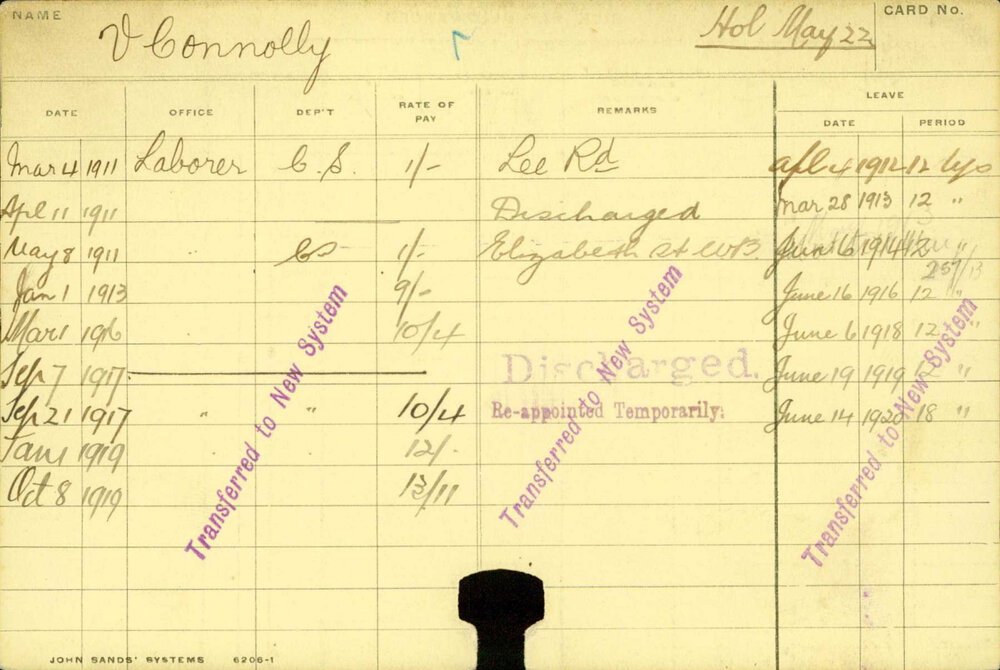 NAME
V Connolly
Hol May 22
CARD No.
DATE OFFICE DEP'T RATE OF PAY REMARKS LEAVE
DATE PERIOD
Mar 4 1911 Laborer C.S. 1/- Lee Rd Apl 4 1912 12 dys
Apl 11 1911 Discharged Mar 28 1913 12 "
May 8 1911 CS 1/- Elizabeth St WB. Jun 16 1914 12 "
257/13
Jan 1 1913 9/- June 16 1916 12 "
Mar 1 1916 10/4 June 6 1918 12 "
Sep 7 1917 Discharged. June 19 1919 "
Sep 21 1917 " " 10/4 Re-appointed Temporarily. June 14 1920 18 "
Jan 1 1919 12/-
Oct 8 1919 13/11
Transferred to New System
Transferred to New System
Transferred to New System
JOHN SANDS' SYSTEMS 6206-1